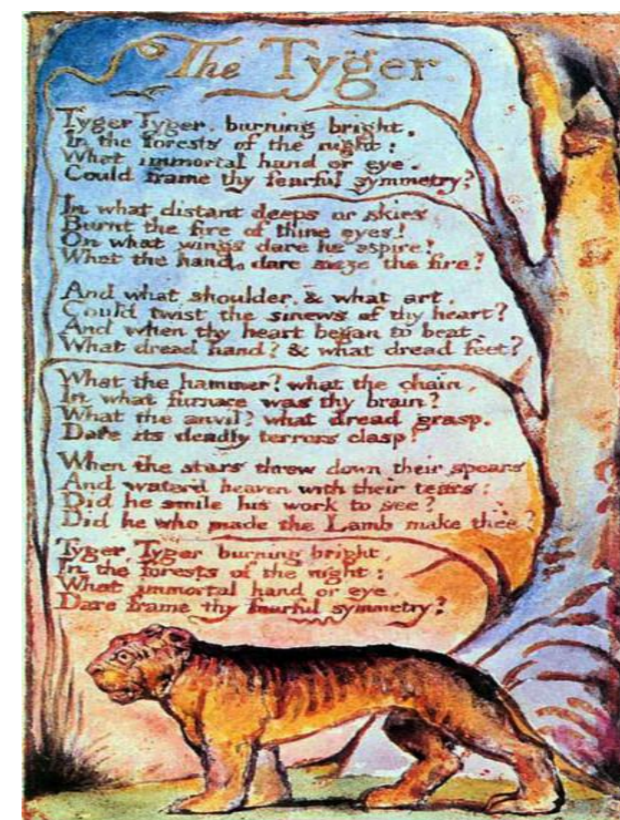 The Tyger
Tyger Tyger, burning bright,
In the forests of the night:
What immortal hand or eye,
Could frame thy fearful symmetry?
In what distant deeps or skies
Burnt the fire of thine eyes!
On what wings dare he aspire!
What the hand, dare sieze the fire?
And what shoulder, & what art,
Could twist the sinews of thy heart?
And when thy heart began to beat,
What dread hand? & what dread feet?
What the hammer? what the chain,
In what furnace was thy brain?
What the anvil? what dread grasp,
Dare its deadly terrors clasp!
When the stars threw down their spears
And water'd heaven with their tears:
Did he smile his work to see?
Did he who made the Lamb make thee?
Tyger Tyger burning bright,
In the forests of the night:
What immortal hand or eye,
Dare frame thy fearful symmetry?